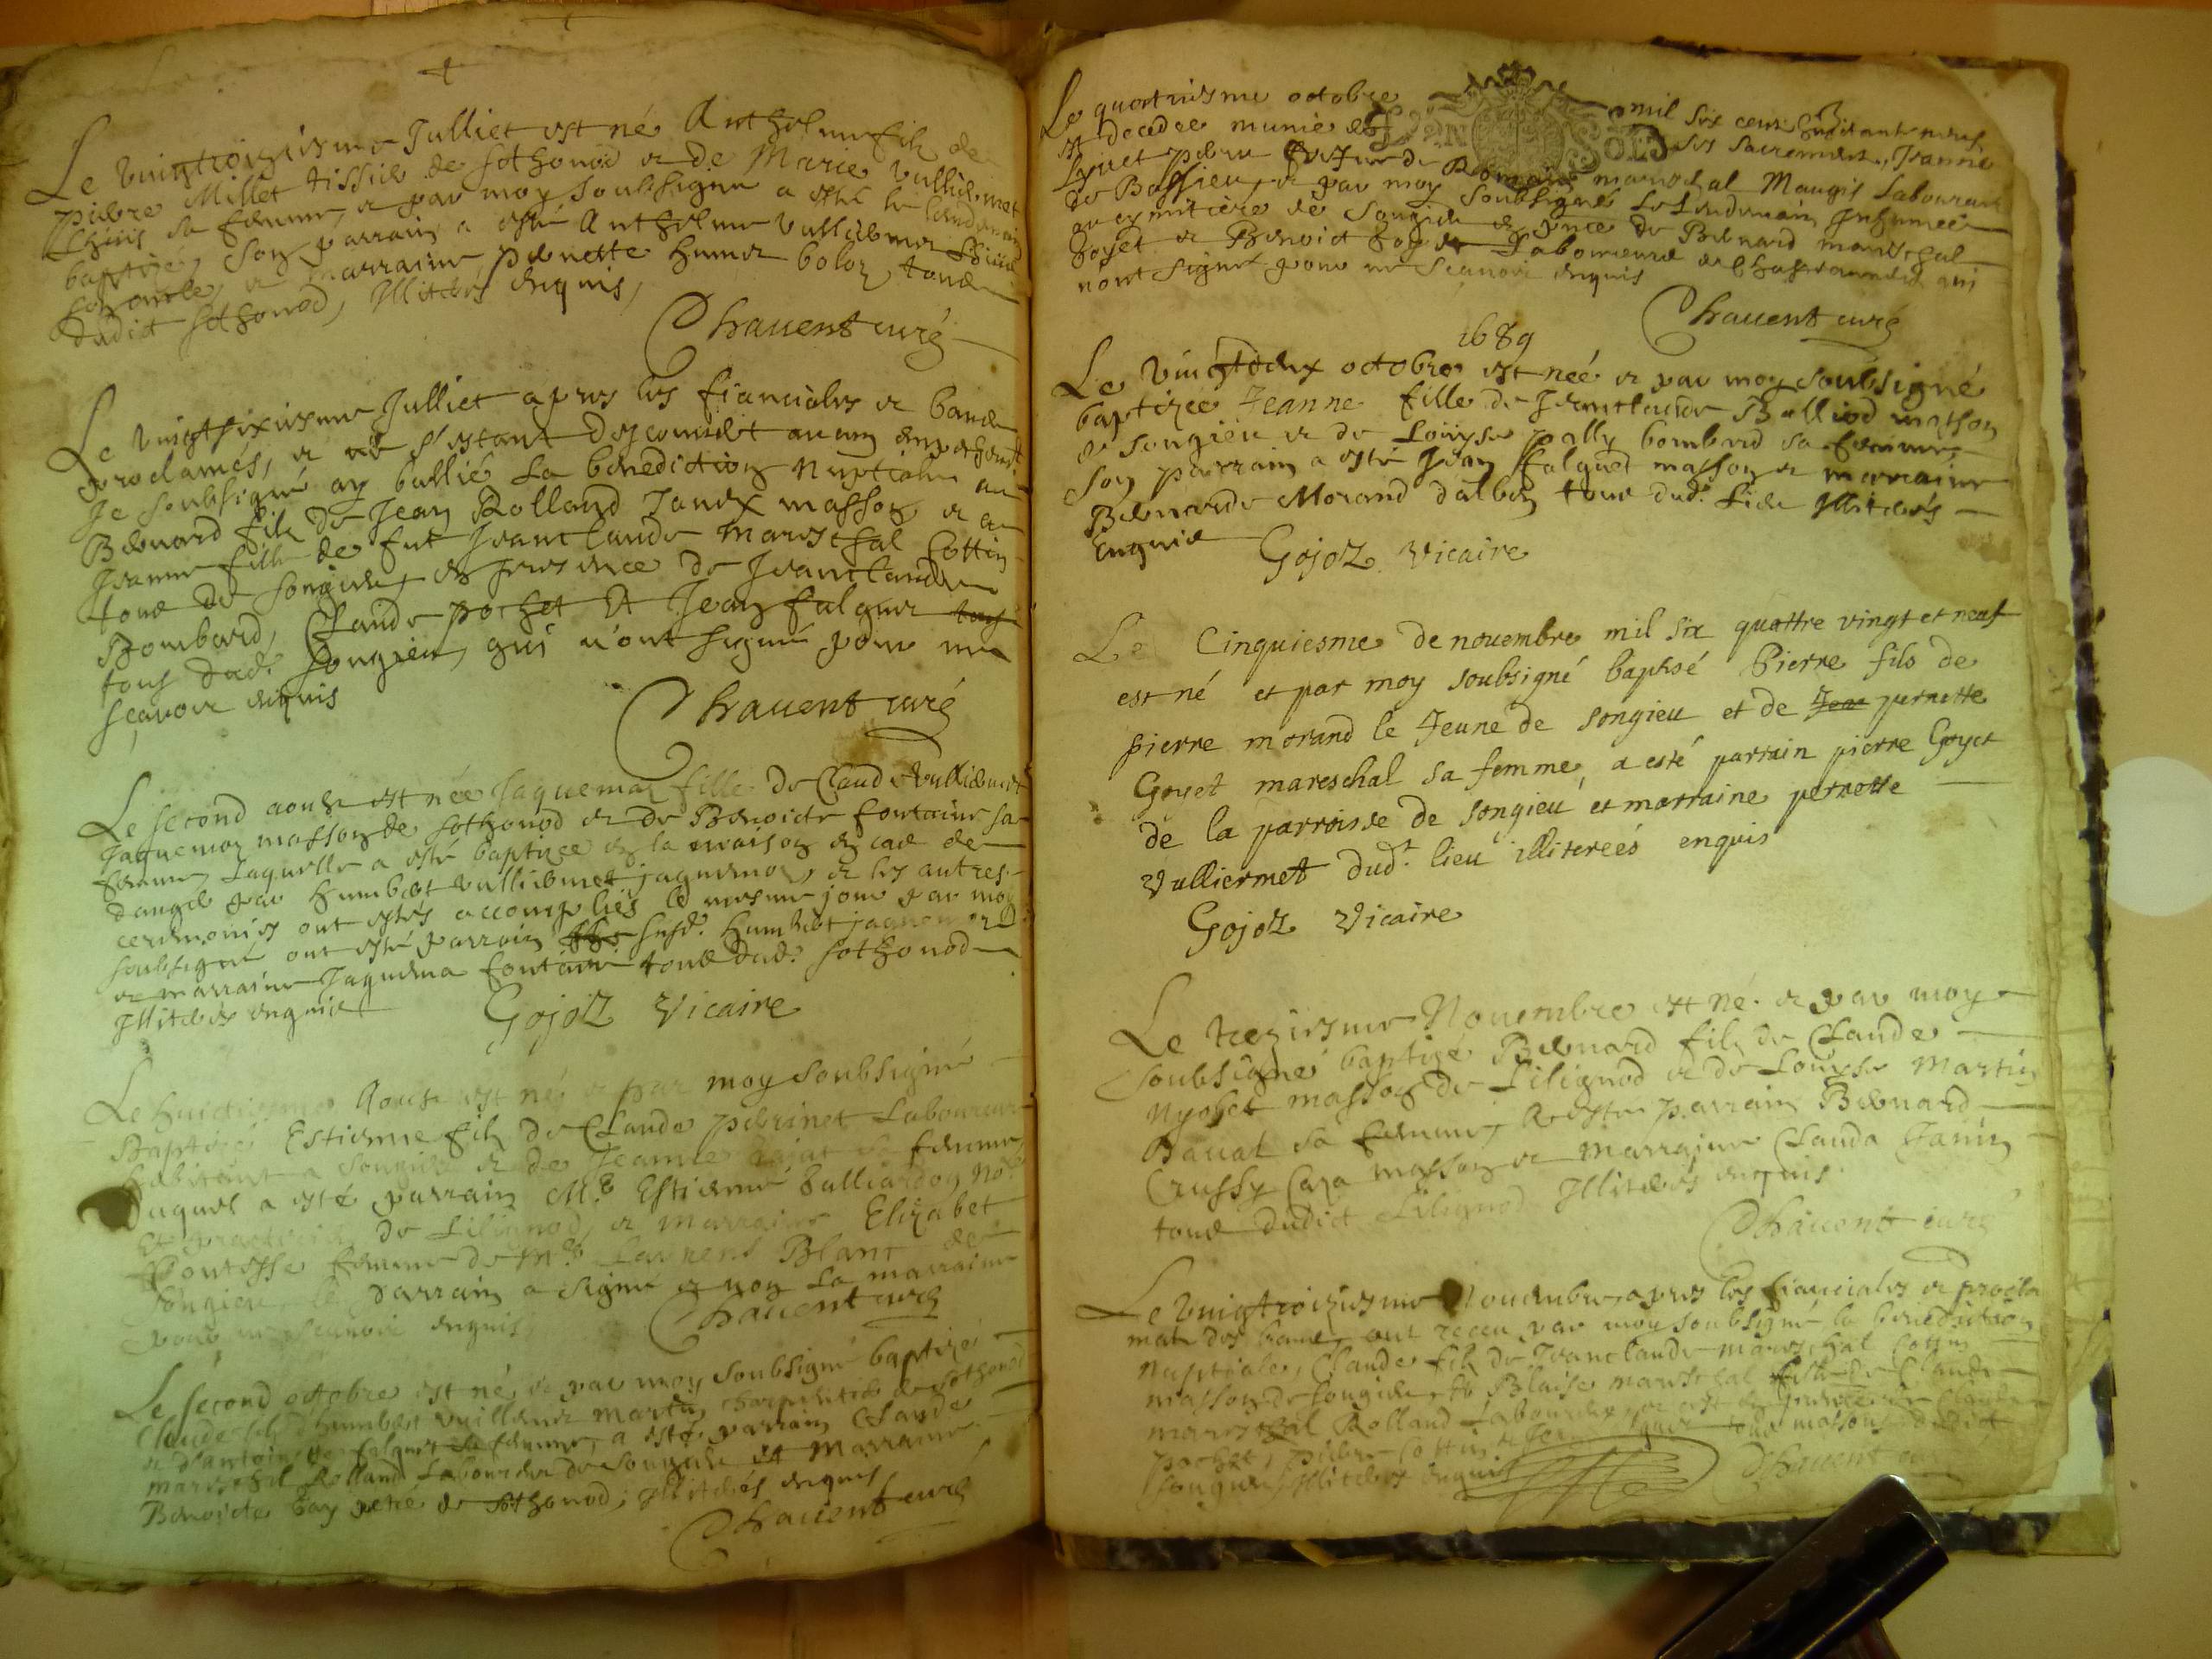 Le vingtroiziesme Julliet est né Anthelme filz de
pierre Millet tissier de sothonod et de Marie vulliermet
sa femme, et par moy soubsigné a esté le lendemain
baptizé, son parrain a esté Anthelme vulliermet
son oncle, et marraine pernette humer bolon, tous
dudict sothonod, Illiterés enquis,
Chauent curé
Le vingtsixiesme Julliet apres les fianciales et bancs
proclamés, et ne s'estant descouuert aucun empechemt
Je soubsigné ay baillié la benediction nuptiale au
Bernard filz de Jean Rolland Janex masson et a
Jeanne fille de fut Jeanclaude mareschal Cottin
tous de songieu, en presence de Jeanclaude
Bombard, Claude pochet et Jean falquet tous
tous dud. songieu, qui n'ont signé pour ne
scauoir enquis
Chauent curé
Le second aoust est née Jaquemaz fille de Claude vulliermet
Jaquemoz masson de sothonod et de Benoiste fontaine sa
femme, Laquelle a esté baptizee en la maison en cas de
danger par humbert vulliermet jaquemoz, et les autres
ceremonies ont estés accomplies le mesme jour par moy
soubsigné ont esté parrain susd. humbert jaquemoz
et marraine Jaquema fontaine tous dud. sothonod
Illiterés enquis
Gojoz vicaire
Le huictiesme Aoust est né et par moy soubsigné
Baptizé Estienne filz de Claude perrinet Laboureur
habitant a songieu et de Jeanne sa femme
Duquel a esté parrain Me Estienne balliardon nore
et de Lilignod, et marraine Elizabet
pontesse femme de Me Laurens Blanc de
songieu, le parrain a signé et non la marraine
pour ne scauoir enquis
Chauent curé
Le second octobre est né et par moy soubsigné baptizé
Claude filz d'humbert vulliermet martin charpentier de sothonod
et d'antoinette falquet sa femme, a esté parrain Claude
mareschal Rolland Laboureur de songieu et marraine
Benoiste bay petré de sothonod, Illiterés enquis
Chauent curé
Le quatriesme octobre mil six cent huictant neuf
est decedee munie de ses sacrements, Jeanne
de Bassieu, et par moy soubsigné le lendemain Inhumée
au cymitiere de songieu en pnce de Bernard mareschal
goyet et Benoict Laboureurs qui
n'ont signé pour ne scauoir enquis
Chauent curé
1689
Le vingtdeux octobre est née et par moy soubsigné
baptizée Jeanne fille de Jeanclaude Balliod masson
de songieu et de Loüyse pally bombard sa femme,
son parrain a esté Jean falquet masson et marraine
Bernarde Morand d'albon tous dud. Lieu Illiterés
Enquis
Gojoz vicaire
Le Cinquiesme de nouembre mil six quattre vingt et neuf
est né et par moy soubsigné baptisé Pierre fils de
pierre morand le Jeune de songieu et de Jean pernette
Goyet mareschal sa femme, a esté parrain pierre Goyet
de la parroisse de songieu et marraine pernette
vulliermet dud.t lieu illiterees enquis
Gojoz vicaire
Le treziesme Nouembre est né et par moy
soubsigné baptizé Bernard filz de Claude
Myochet masson de Lilignod et de Loüyse Martin
Bauat sa femme, a esté parrain Bernard
Crussy Caza masson et marraine Clauda Janin
tous dudict Lilignod Illiterés enquis
Chauent curé
Le vingtroiziesme Nouembre, apres les fianciales et procla
mãon des bancs, ont receu par moy soubsigné la benediction
Nuptiale, Claude filz de Jeanclaude mareschal Cottin
masson de songieu, et Blaise mareschal fille de Claude
mareschal Rolland Laboureur, en presence de Claude
pochet, pierre Cottin et tous massons dudict
songieu, Illiterés enquis
Chauent curé